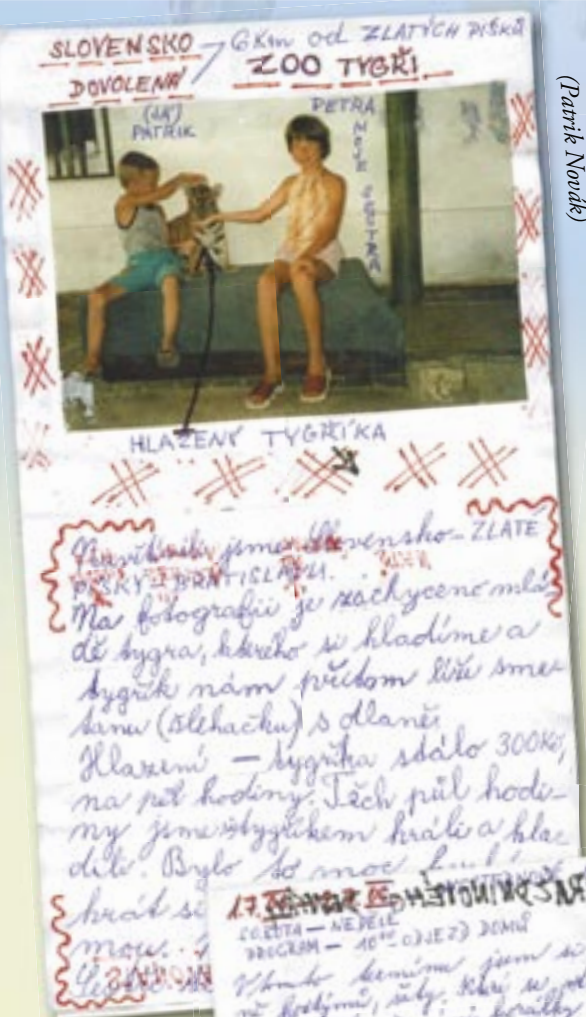 (Patrik Novák)
SLOVENSKO – 6 Km od ZLATÝCH PÍSKŮ
DOVOLENÁ
ZOO TYGŘI
(JÁ)
PATRIK
PETRA
MOJE SESTRA
HLAZENÝ TYGŘÍKA
Navštívili jsme Slovensko – ZLATE
PISKY – BRATISLAVU.
Na fotografii je záchyceno mlá-
dě tygra, kterého si hladíme a
tygřík nám přitom líže sme-
tanu (šlehačku) s dlaně.
Hlazení – tygříka stálo 300Kč,
na půl hodiny. Těch půl hodi-
ny jsme s tygříkem hráli a hla-
dili. Bylo to moc
hrát si
mou.
17.
SOBOTA – NEDĚLE
PROGRAM – 10⁰⁰ – ODJEZD DOMŮ
jsem si
šaty, které se
korálky